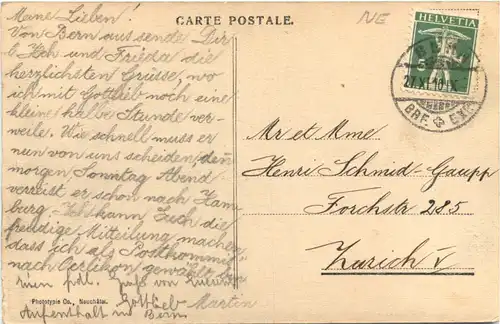 CARTE POSTALE.
NE
HELVETIA
5
BERN
27.XI.10.-X
BRF. EXP.
Meine Lieben!
Von Bern aus sende Dir
b. Hch und Frieda die
herzlichsten Grüsse, wo
ich mit Gottlieb noch eine
kleine halbe Stunde ver-
weile. Wie schnell muss er
nun von uns scheiden, denn
morgen Sonntag Abend
verreist er schon nach Ham
burg. Ich kann Euch die
freudige Mitteilung machen
dass ich als Postkommel
nach Oerlikon gewählt bin
Gruß von
Gottlieb Martin
Aufenthalt in Bern
Mr et Mme.
Henri Schmid-Gaupp
Forchstr 285
Zurich V
Phototypie Co., Neuchâtel